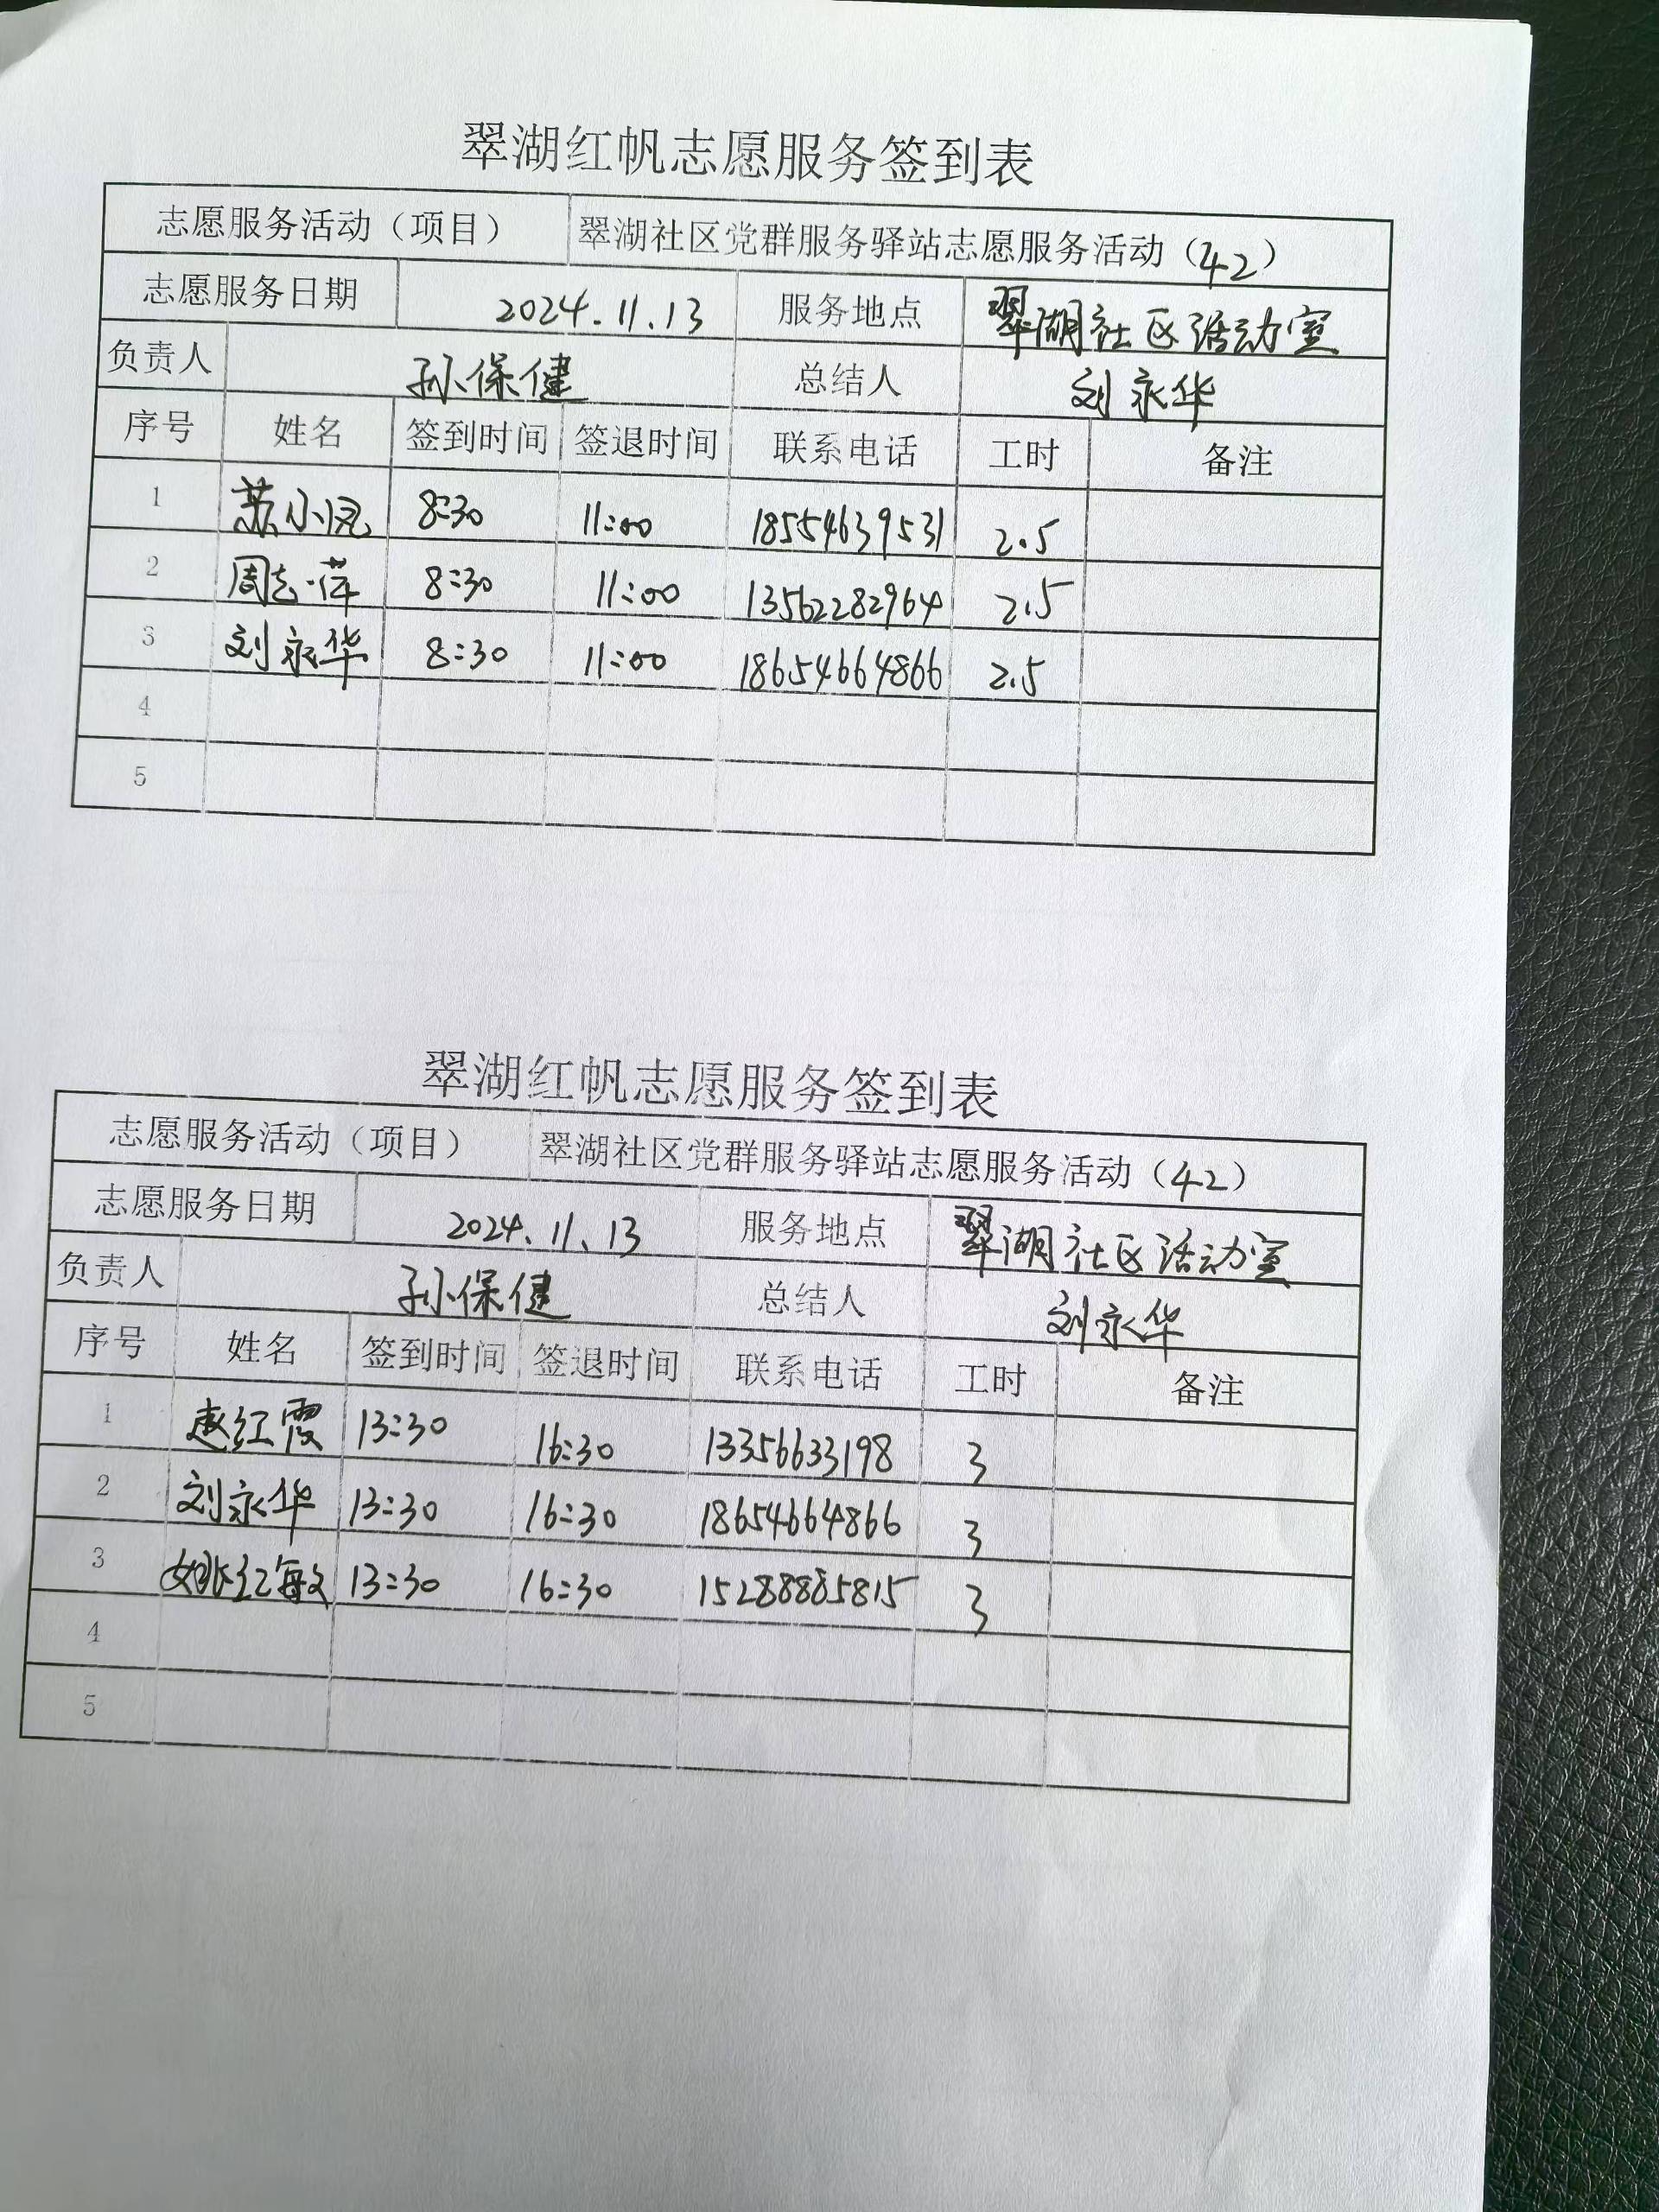 翠湖红帆志愿服务签到表
志愿服务活动（项目） 翠湖社区党群服务驿站志愿服务活动（42）
志愿服务日期 2024.11.13 服务地点 翠湖社区活动室
负责人 孙保健 总结人 刘永华
序号 姓名 签到时间 签退时间 联系电话 工时 备注
1 苏小凤 8:30 11:00 18554639531 2.5
2 周志萍 8:30 11:00 13562282964 2.5
3 刘永华 8:30 11:00 18654664866 2.5
4
5
翠湖红帆志愿服务签到表
志愿服务活动（项目） 翠湖社区党群服务驿站志愿服务活动（42）
志愿服务日期 2024.11.13 服务地点 翠湖社区活动室
负责人 孙保健 总结人 刘永华
序号 姓名 签到时间 签退时间 联系电话 工时 备注
1 赵红霞 13:30 16:30 13356633198 3
2 刘永华 13:30 16:30 18654664866 3
3 姚红敏 13:30 16:30 15288885815 3
4
5